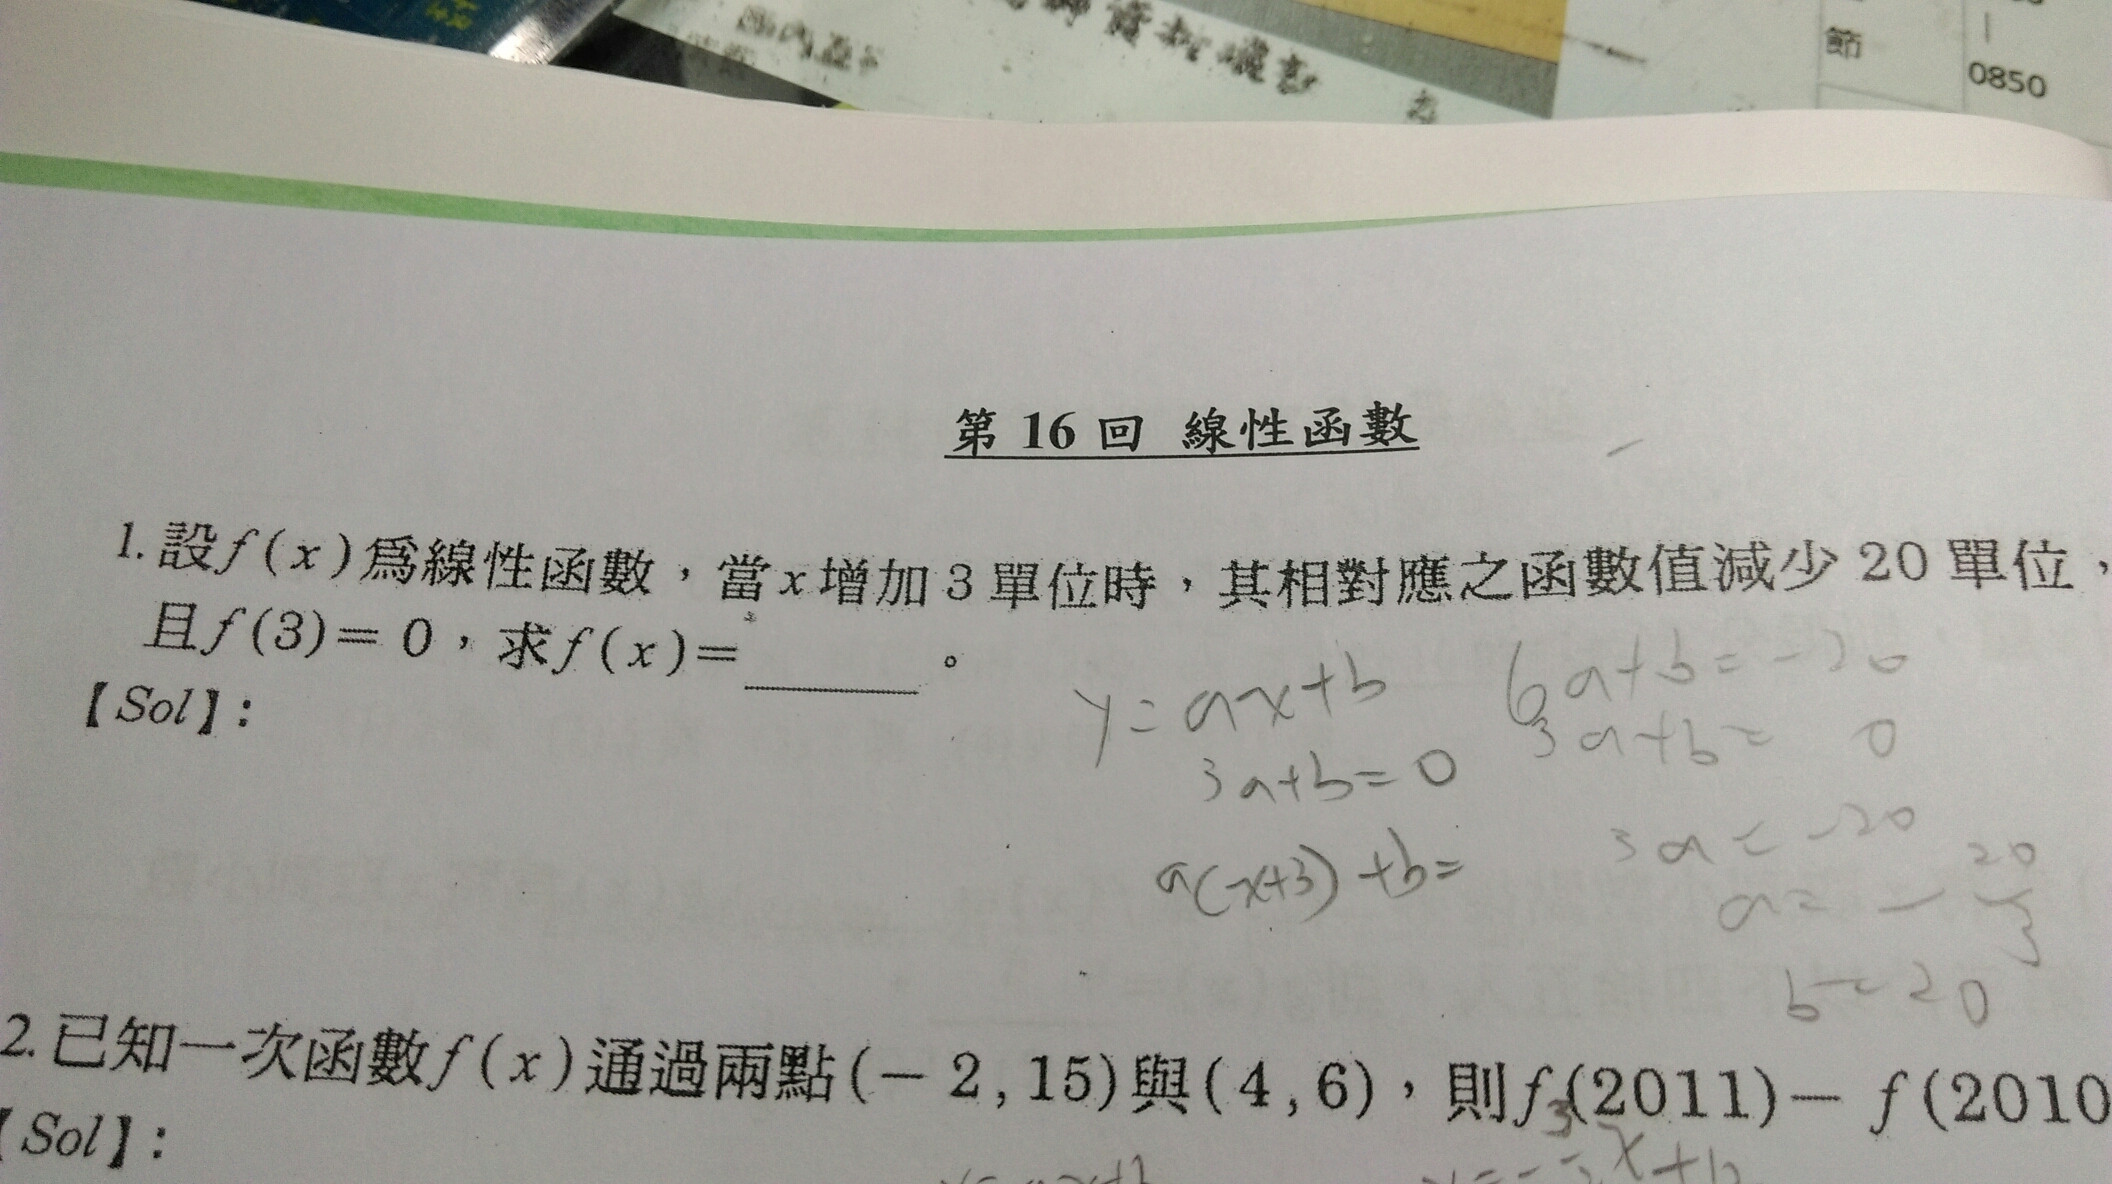 節
0850
第 16 回 線性函數
1. 設f(x)爲線性函數，當x增加3單位時，其相對應之函數值減少20單位，
且f(3)=0，求f(x)=______。
【Sol】:
y=ax+b
3a+b=0
a(x+3)+b=
6a+b=-20
3a+b= 0
3a=-20
a=-20/3
b=20
2. 已知一次函數f(x)通過兩點(-2,15)與(4,6)，則f(2011)-f(2010
【Sol】: